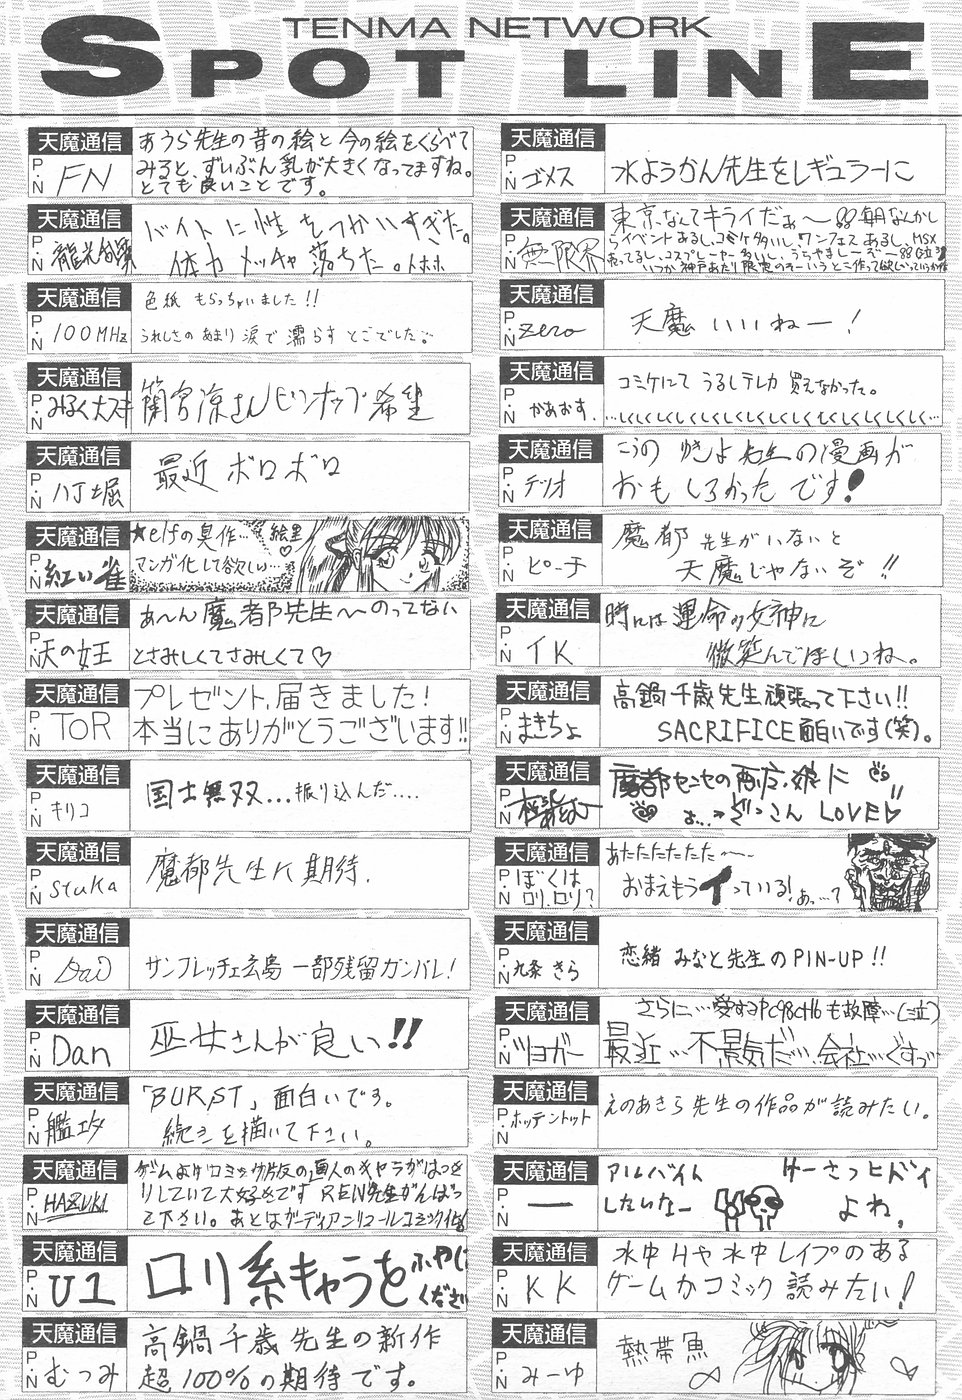 TENMA NETWORK
SPOT LINE
天魔通信
P.N FN
あうら先生の昔の絵と今の絵をくらべて
みると、ずいぶん乳が大きくなってますね。
とても良いことです。
天魔通信
P.N
バイトに性をつかいすぎた。
体力メッチャ落ちた。トホホ
天魔通信
P.N 100MHz
色紙もらっちゃいました!!
うれしさのあまり涙で濡らすとこでした
天魔通信
P.N みるく大スキ
蘭宮涼さんピンナップ希望
天魔通信
P.N 八丁堀
最近ボロボロ
天魔通信
P.N 紅い雀
★elfの臭作… 絵里♡
マンガ化して欲しい…
天魔通信
P.N 天の女王
あ〜ん魔都先生〜〜のってない
とさみしくてさみしくて♡
天魔通信
P.N TOR
プレゼント、届きました!
本当にありがとうございます!!
天魔通信
P.N キリコ
国士無双...振り込んだ....
天魔通信
P.N stuka
魔都先生に期待.
天魔通信
P.N DaD
サンフレッチェ広島一部残留ガンバレ!
天魔通信
P.N Dan
巫女さんが良い!!
天魔通信
P.N 艦攻
「BURST」面白いです。
続きを描いて下さい。
天魔通信
P.N HAZUKI
ゲームよりコミック版の直人のキャラがはっき
りしていて大好きです REN先生がんばっ
て下さい。あとはガーディアンリコールコミック化
天魔通信
P.N U1
ロリ系キャラをふやして
ください
天魔通信
P.N むつみ
高鍋千歳先生の新作
超100%の期待です。
天魔通信
P.N ゴメス
水ようかん先生をレギュラーに
天魔通信
P.N 無限界
東京なんてキライだぁ〜 毎月なんかし
らイベントあるし、コミケ多いし、ワンフェスあるし、MSX
売ってるし、コスプレーヤー多いし、うらやましーぞ〜
いつか神戸あたり限定のそーいうとこ作って欲しい
天魔通信
P.N zero
天魔いいねー!
天魔通信
P.N かあおす.
コミケにてうるしテレカ買えなかった。
…しくしくしくしくしくしくしくしくしくしくしく…
天魔通信
P.N テリオ
こうのゆきよ先生の漫画が
おもしろかったです!
天魔通信
P.N ピーチ
魔都先生がいないと
天魔じゃないぞ!!
天魔通信
P.N IK
時には運命の女神に
微笑んでほしいね。
天魔通信
P.N まきちょ
高鍋千歳先生頑張って下さい!!
SACRIFICE面白いです(笑)。
天魔通信
P.N
魔都センセの
ぞっこん LOVE♡
天魔通信
P.N ぼくはロリ.ロリ?
あたたたたたた〜〜
おまえもうイっている! あ…て
天魔通信
P.N 九条きら
恋緒みなと先生のPIN-UP!!
天魔通信
P.N ツヨガー
さらに…愛するPC98CH6も故障…(泣)
最近…不景気だ…会社…ぐすっ
天魔通信
P.N ホッテントット
えのあきら先生の作品が読みたい。
天魔通信
P.N 一
アルバイト
したいなー
けーさつヒドイ
よね。
天魔通信
P.N KK
水中Hや水中レイプのある
ゲームかコミック読みたい!
天魔通信
P.N みーゆ
熱帯魚